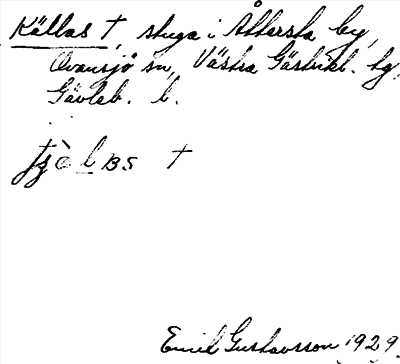 Källas †, stuga i Åttersta by,
Ovansjö sn, Västra Gästrikl. hg,
Gävleb. l.
†
Emil Gustavsson 1929.